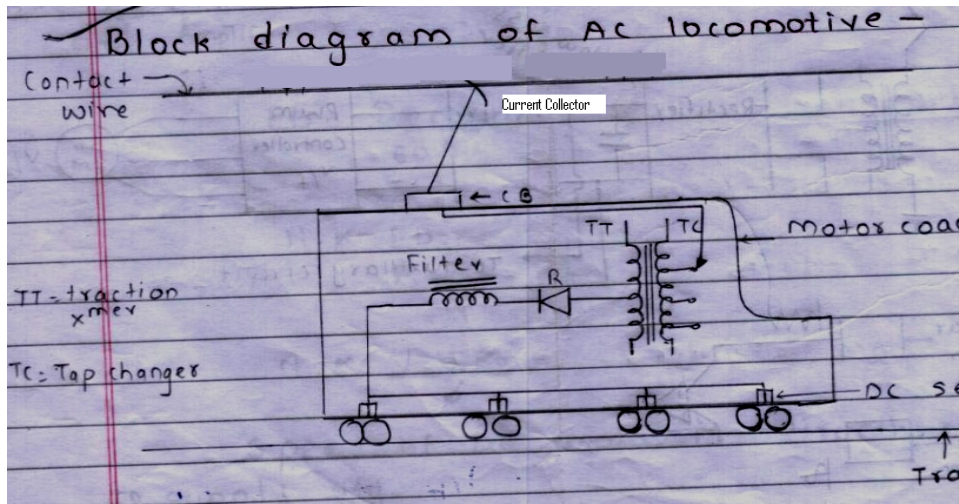 Block diagram of AC locomotive -
Contact
wire
Current Collector
← CB
TT TC
Motor
Filter
R
TT = traction
xmer
TC = Tap changer
DC